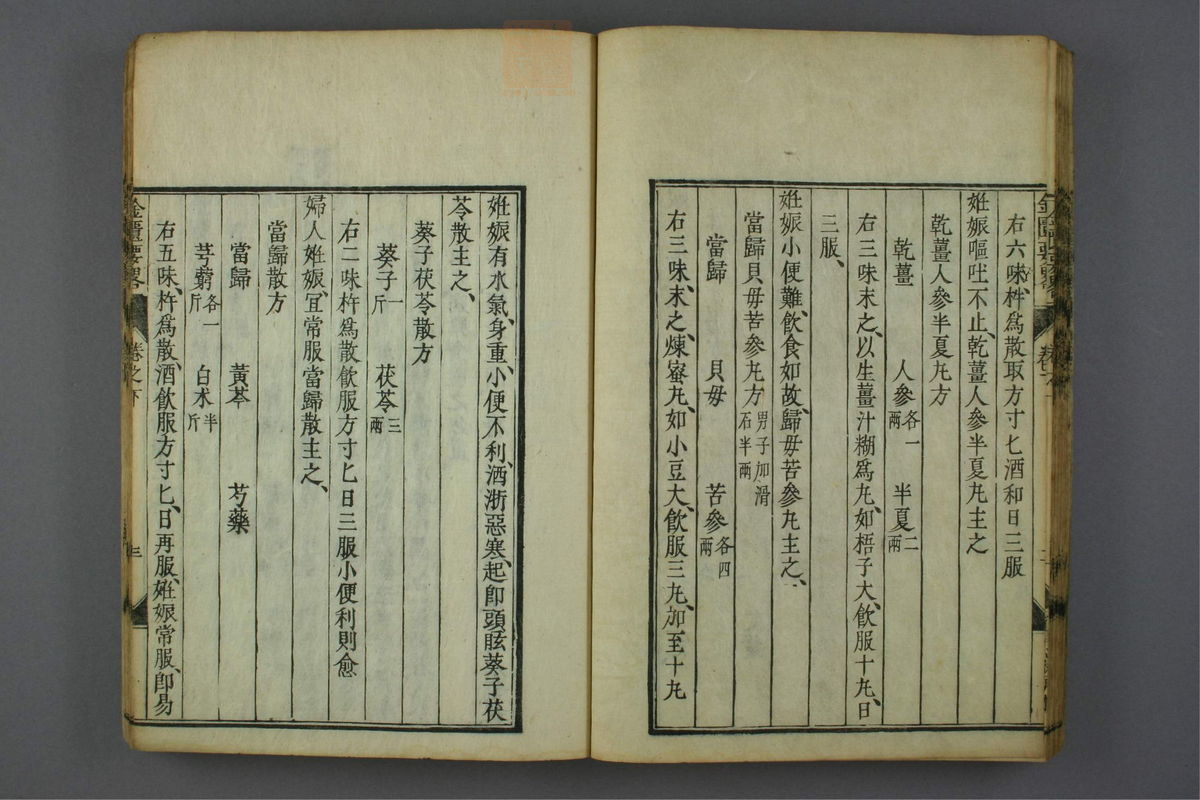 右六味、杵爲散取方寸匕酒和日三服
姙娠嘔吐不止、乾薑人參半夏丸主之
乾薑人參半夏丸方
乾薑　人參各一兩　半夏二兩
右三味末之、以生薑汁糊爲丸、如梧子大、飲服十丸、日
三服、
姙娠小便難、飲食如故、歸毋苦參丸主之、
當歸貝毋苦參丸方男子加滑石半兩
當歸　貝毋　苦參各四兩
右三味、末之、煉蜜丸、如小豆大、飲服三丸、加至十丸
姙娠有水氣、身重、小便不利、洒淅惡寒、起卽頭眩、葵子茯
苓散主之、
葵子茯苓散方
葵子一斤　茯苓三兩
右二味杵爲散飲服方寸匕日三服小便利則愈
婦人姙娠、宜常服當歸散主之、
當歸散方
當歸　黃芩　芍藥
芎藭各一斤　白术半斤
右五味、杵爲散、酒飲服方寸匕、日再服、姙娠常服、卽易
金匱要略　卷之下　三